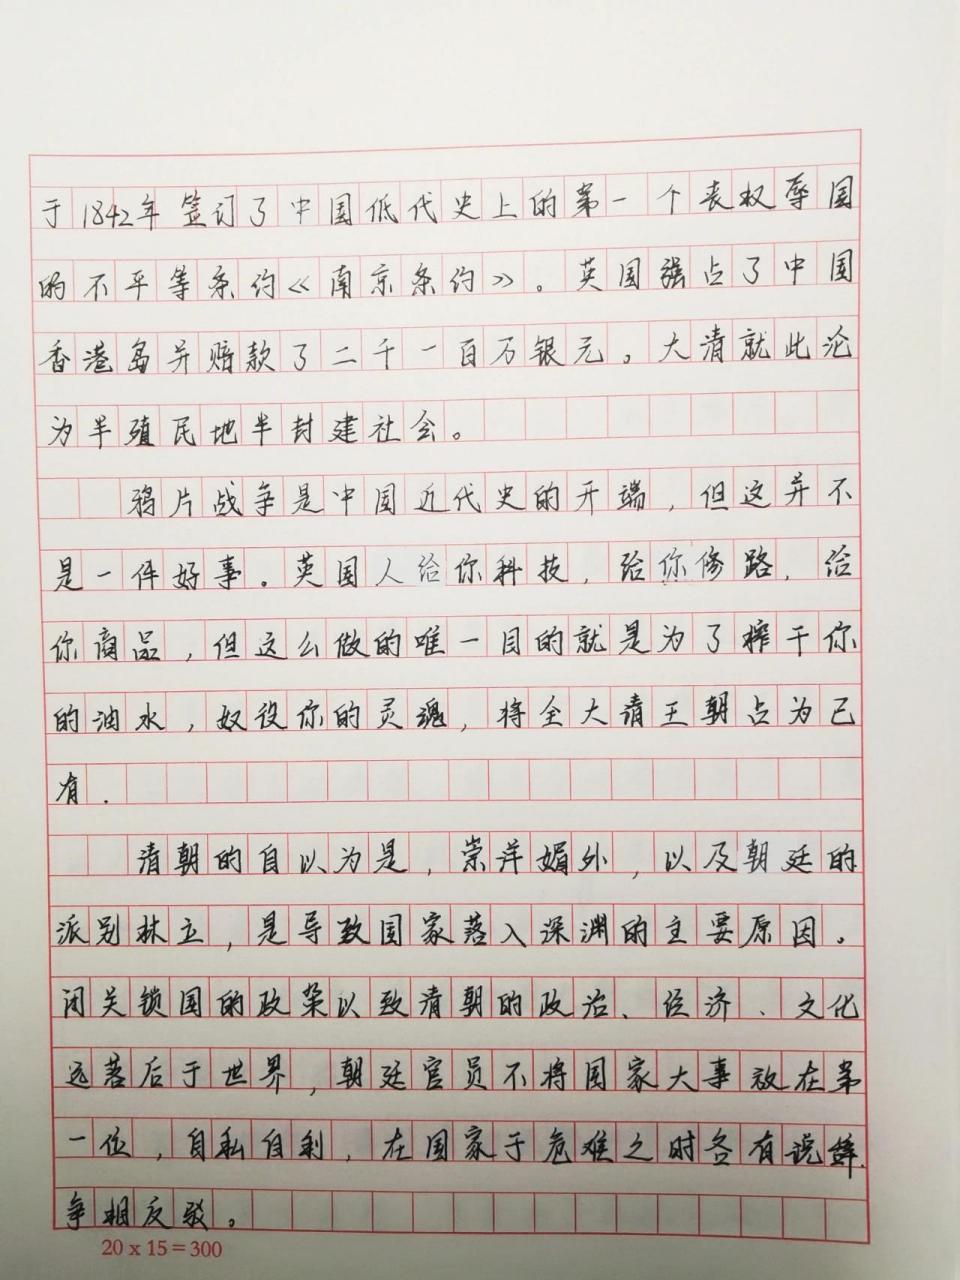 于1842年签订了中国低代史上的第一个丧权辱国
的不平等条约《南京条约》。英国强占了中国
香港岛并赔款了二千一百万银元。大清就此沦
为半殖民地半封建社会。
鸦片战争是中国近代史的开端，但这并不
是一件好事。英国人给你科技，给你修路，给
你商品，但这么做的唯一目的就是为了榨干你
的油水，奴役你的灵魂，将全大清王朝占为已
有.
清朝的自以为是，崇洋媚外，以及朝廷的
派别林立，是导致国家落入深渊的主要原因。
闭关锁国的政策以致清朝的政治、经济、文化
远落后于世界，朝廷官员不将国家大事放在第
一位，自私自利，在国家于危难之时各有说辞.
争相反驳。
20 x 15 = 300